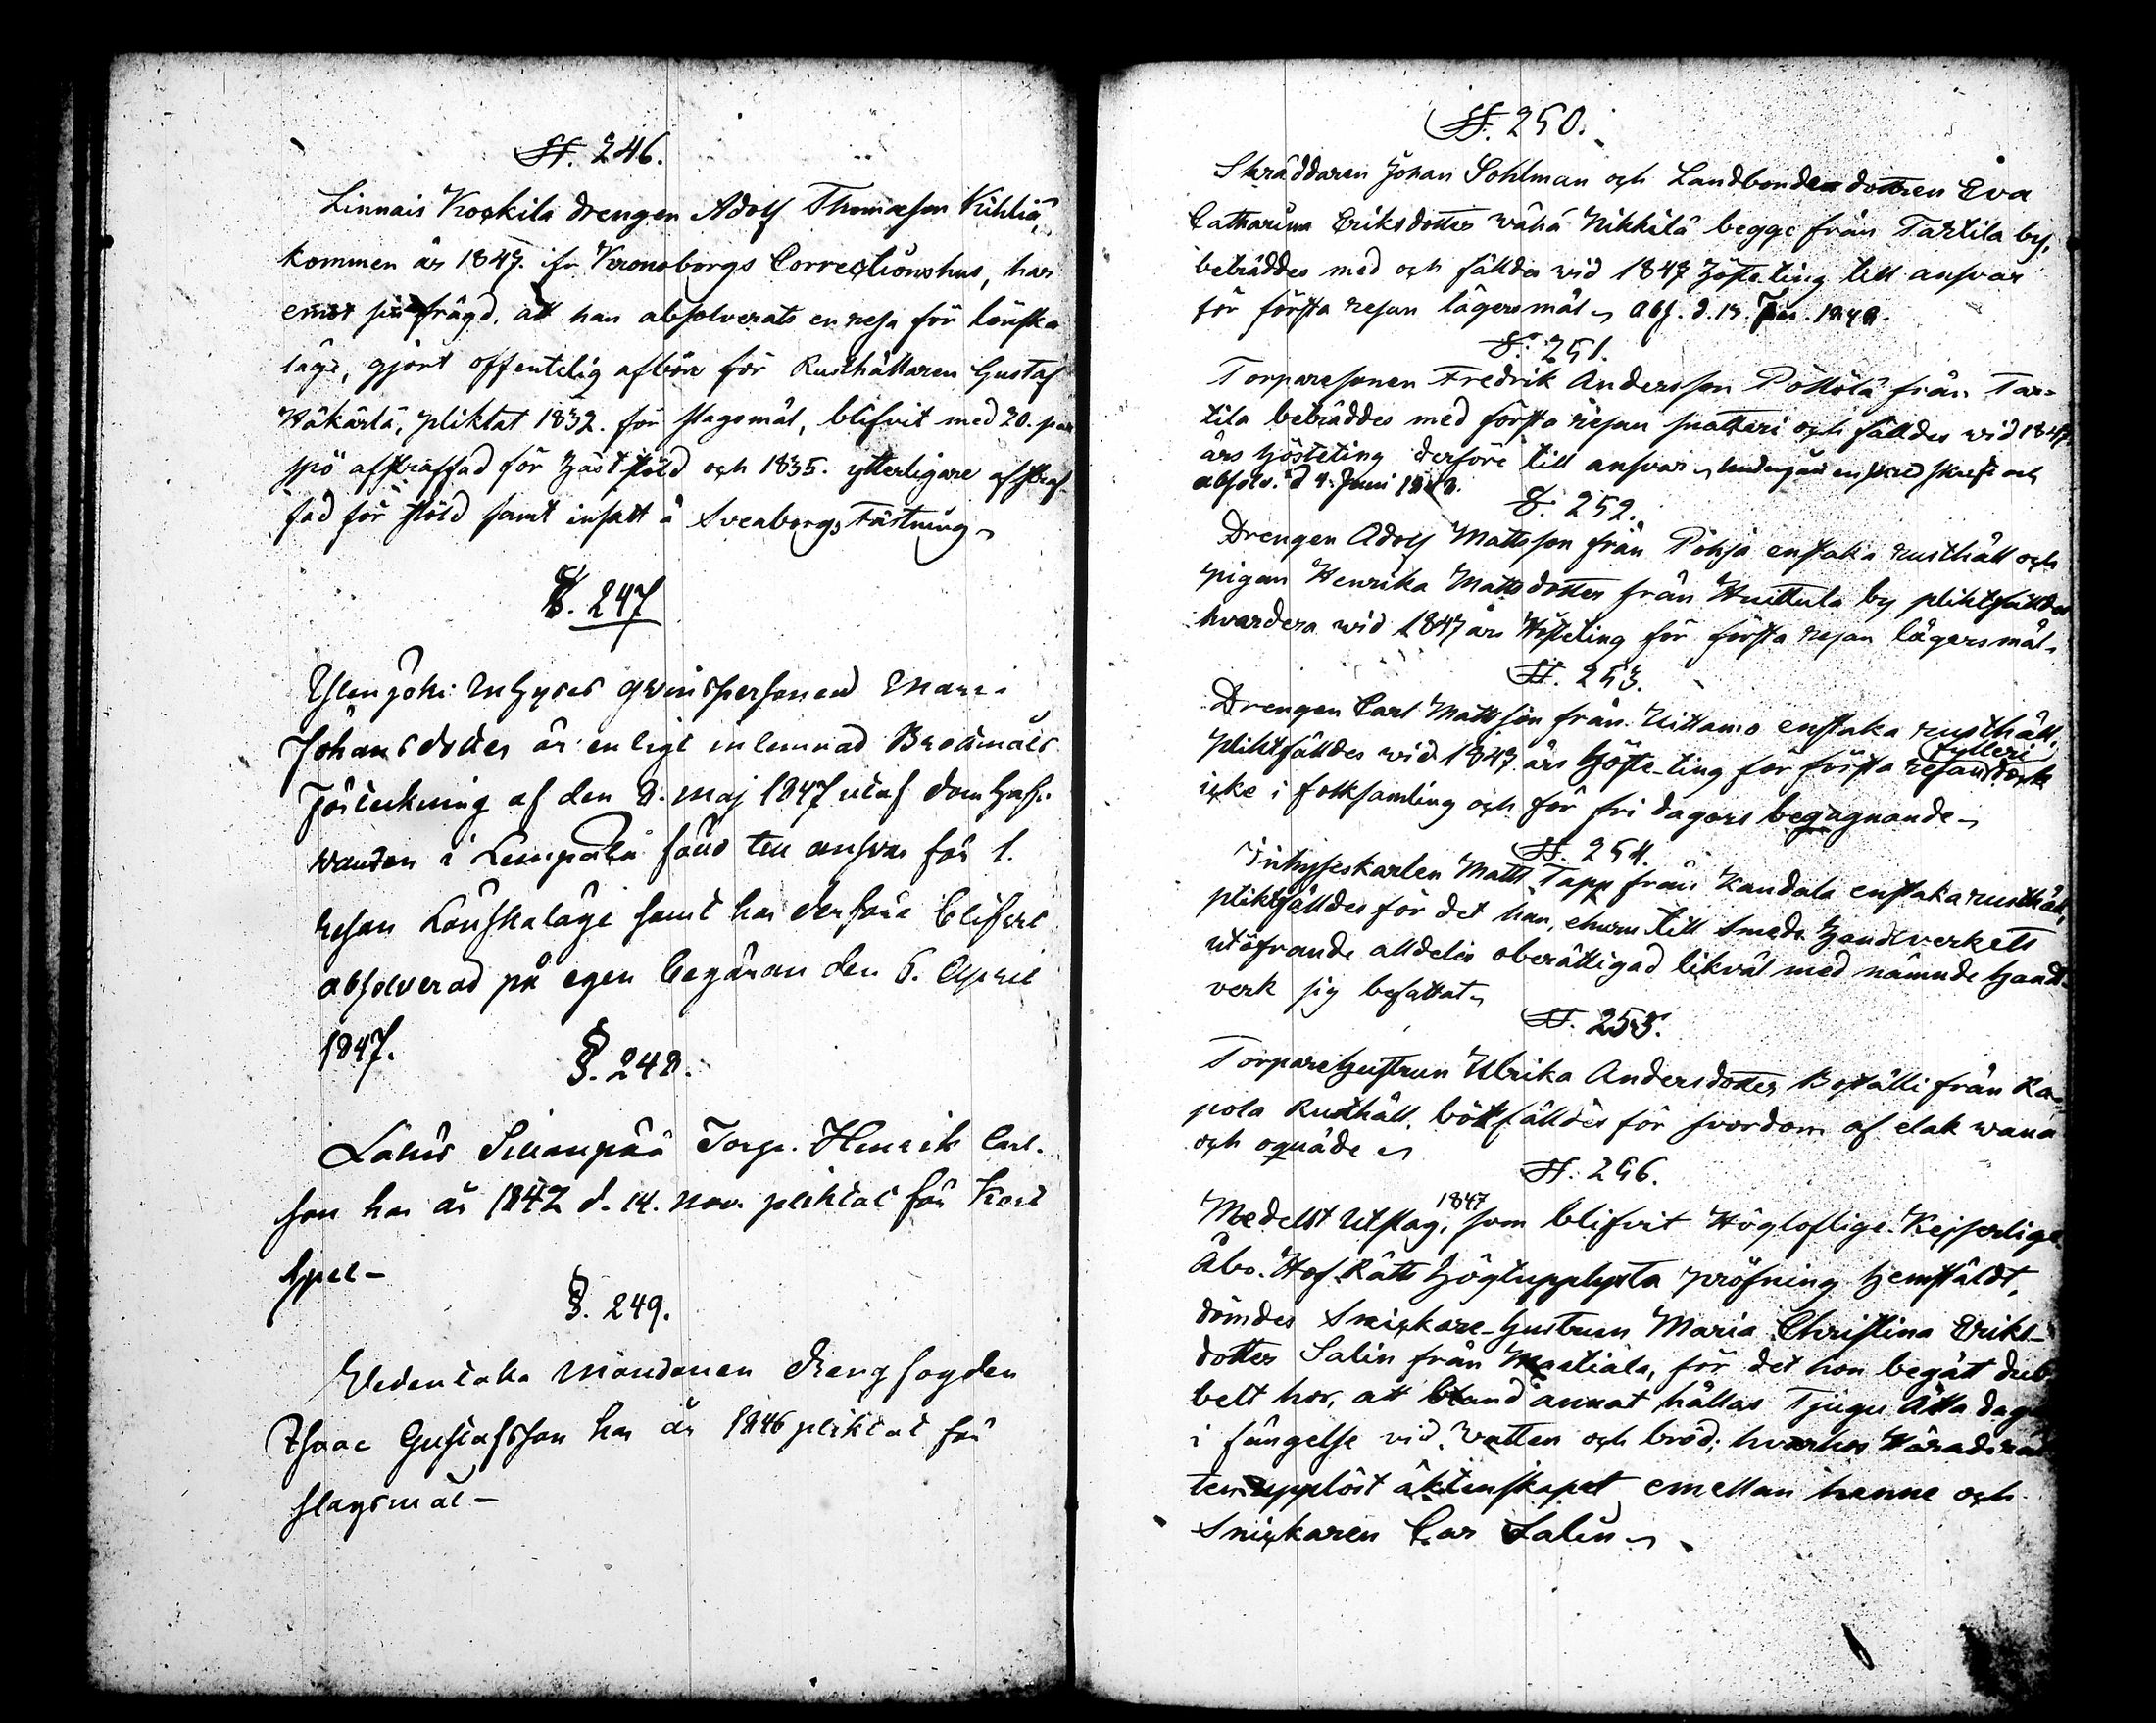 §. 246.
Linnais Kockila drengen Adolf Thomasson Kihliä,
kommen år 1847. ifr. Kronoborgs Correctionshus, har
emot sin frägd, att han absolverats en resa för lönska
läge, gjort offentelig afbön för Rusthållaren Gustaf
Häkärlä, pliktat 1832. för slagsmål, blifvit med 20. par
spö afstraffad för häststöld och 1835. ytterligare afstraf-
fad för stöld samt insatt å Sveaborgs Fästning
§. 247
Ylenjoki Inhyses qwinspersonen Maria
Johansdotter är enligt inlemnad Brottmåls
Förteckning af den 8. maj 1847 utaf Domhafv.
wanden i Lempälä sänd till answar för 1.
resan Lönskaläge samt har derföre blifvit
absolverad på egen begäran den 6. April
1847.
§. 248.
Torp. Henrik Carl.
son har år 1842 d. 14. nov. pliktat för Kort
spel –
§. 249.
Drengfogden
Isaac Gustafsson har år 1846 pliktat för
slagsmål –
§. 250.
Skräddaren Johan Sohlman och Landbondedottren Eva
Catharina Eriksdotter Wähä Nikkilä begge från Tartila by,
beträddes med och fälldes wid 1847 Hösteting till answar
för första resan lägersmål. Abs. d. 1848.
§. 251.
Torparesonen Fredrik Andersson Pöllölä från Tar-
tila beträddes med första resan snatteri och fälldes wid 1847
års Hösteting derföre till answar, undergått enskild skrift och
absolv. d. 4. Juni 1848.
§. 252.
Drengen Adolf Mattsson från Pohja enstaka rusthåll och
pigan Henrika Mattsdotter från Huittula by pliktfälldes
hvardera wid 1847 års Hösteting för första resan lägersmål.
§. 253.
Drengen Carl Mattsson från Uittamo enstaka rusthåll,
fylleri
pliktfälldes wid 1847 års Höste-ting för första resan dock
icke i folksamling och för fri dagars begagnande
§. 254.
Inhyseskarlen Matts Tapp från Kandala enstaka rusthåll,
pliktfälldes för det han, ehuru till Smeds Handtverkets
utöfvande alldeles oberättigad likväl med nämnde handt-
verk sig befattat
§. 255.
Torparehustrun Ulrika Andersdotter Boställi från Ra-
pola Rusthåll, bötfälldes för svordom af elak wana
och oqväde
§. 256.
1847
Medelst Utslag, som blifvit Högloflige Kejserlige
Åbo Hof Rätts Högtupplysta pröfning hemstäldt,
dömdes Snickare-hustrun Maria Christina Eriks-
dotter Salin från Mastiala, för det hon begått dub-
belt hor, att bland annat hållas Tjugu Åtta dagar
i fängelse vid vatten och bröd; hvarhos Häradsrät
ten upplöst äktenskapet emellan henne och
Snickaren Carl Salin